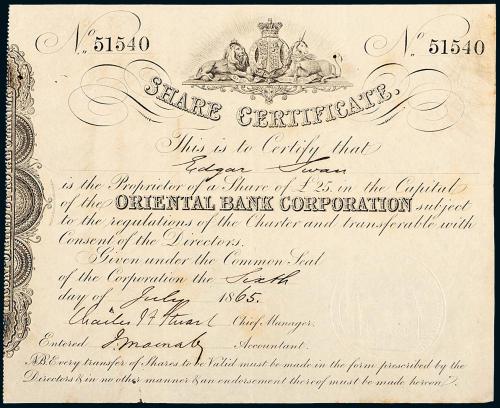 No. 51540 No. 51540
SHARE CERTIFICATE.
This is to Certify that
Edgar Swan
is the Proprietor of a Share of £25. in the Capital
of the ORIENTAL BANK CORPORATION subject
to the regulations of the Charter and transferable with
Consent of the Directors.
Given under the Common Seal
of the Corporation the Sixth
day of July 1865.
Charles J F Stuart Chief Manager.
Entered Accountant.
N.B. Every transfer of Shares to be Valid must be made in the form prescribed by the
Directors & in no other manner & an endorsement thereof must be made hereon.